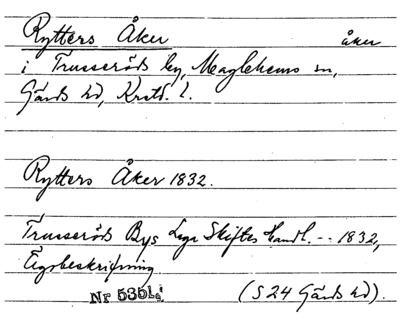 Rytters Åker åker
i Trusseröds by, Maglehems sn,
Gärds hd, Krsts. l.
Rytters Åker 1832.
Trusseröds Bys Laga Skiftes Handl. -- 1832,
Ägobeskrifning
Nr 535 (S 24 Gärds hd).